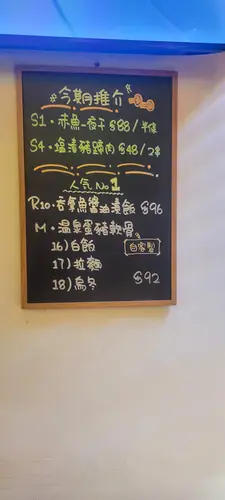 #今期推介
S1・赤魚一夜干 $88/半條
S4・塩漬豬頸肉 $48/2串
人気 No 1
R10・吞拿魚醬油漬飯 $96
M・温泉蛋豬軟骨
16)白飯 自客製
17)拉麵
18)烏冬 $92